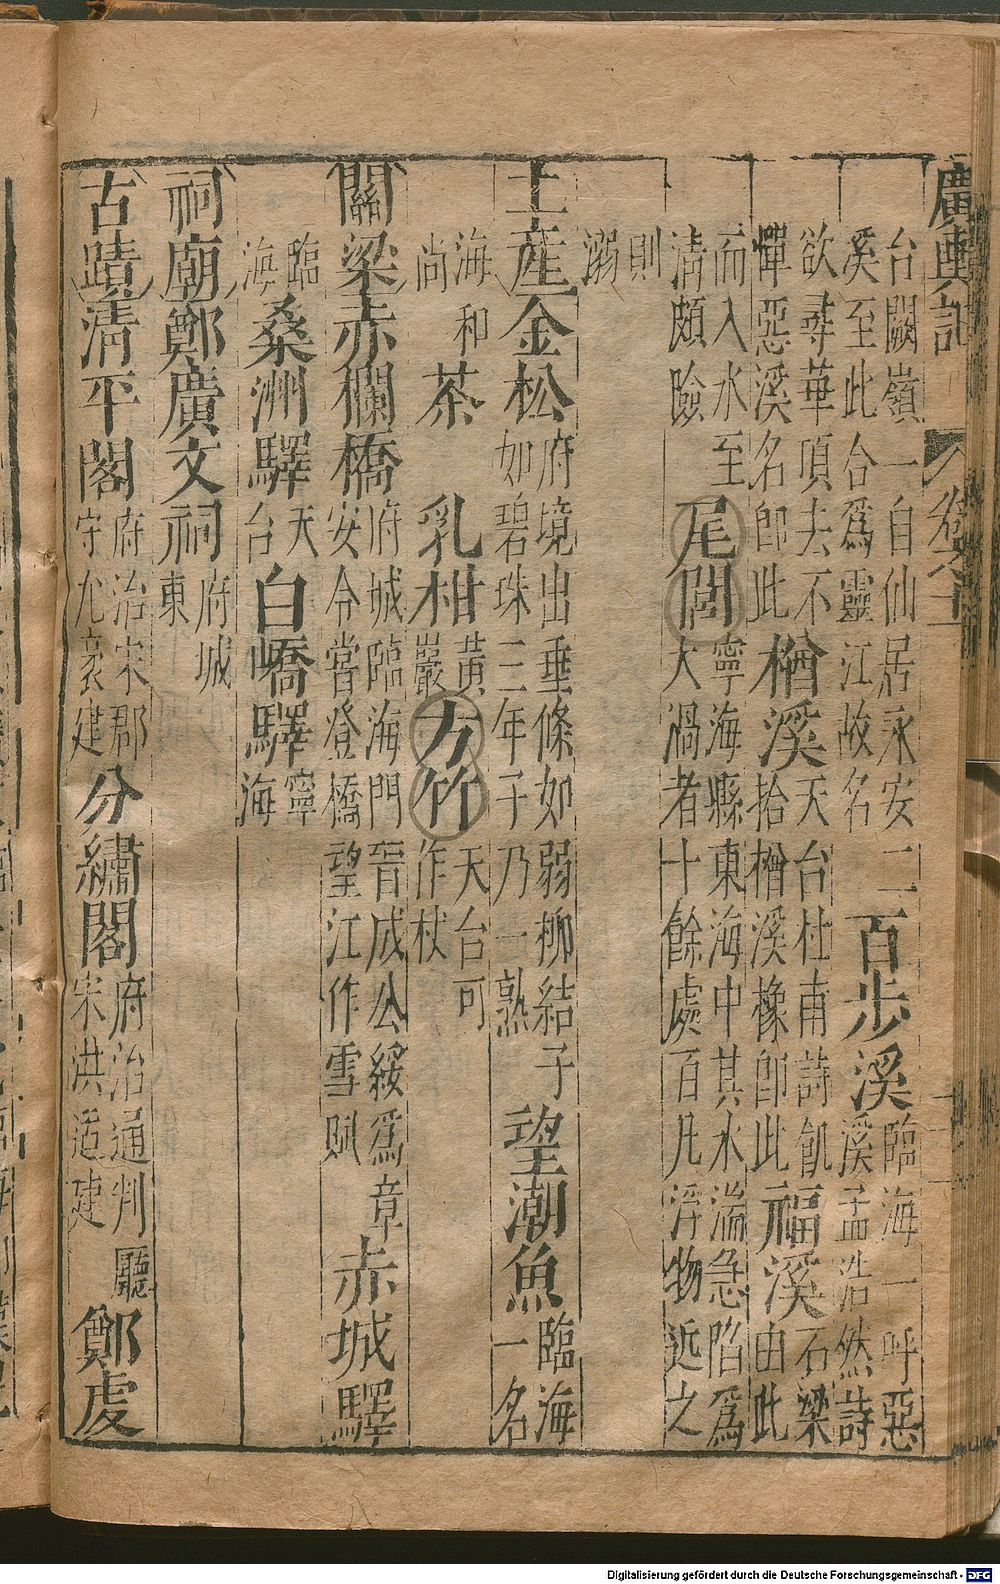 廣輿記 卷之十
台闕嶺一自仙居永安二
溪至此合爲靈江故名
百步溪
臨海一呼惡
溪孟浩然詩
欲尋華頂去不
憚惡溪名卽此
楢溪
天台杜甫詩飢
拾楢溪橡卽此
福溪
石梁
由此
而入水至
清頗險
尾閭
寧海縣東海中其水湍急陷爲
大渦者十餘處百凡浮物近之
則
溺
土產 金松
府境出垂條如弱柳結子
如碧珠三年子乃一熟
望潮魚
臨海
一名
海和
尚
茶
乳柑
黃
巖
方竹
天台可
作杖
關梁 赤欄橋
府城臨海門晉成公綏爲章
安令嘗登橋望江作雪賦
赤城驛
臨
海
桑洲驛
天
台
白嶠驛
寧
海
祠廟 鄭廣文祠
府城
東
古蹟 清平閣
府治宋郡
守尤袤建
分繡閣
府治通判廳
宋洪适建
鄭虔
Digitalisierung gefördert durch die Deutsche Forschungsgemeinschaft - DFG